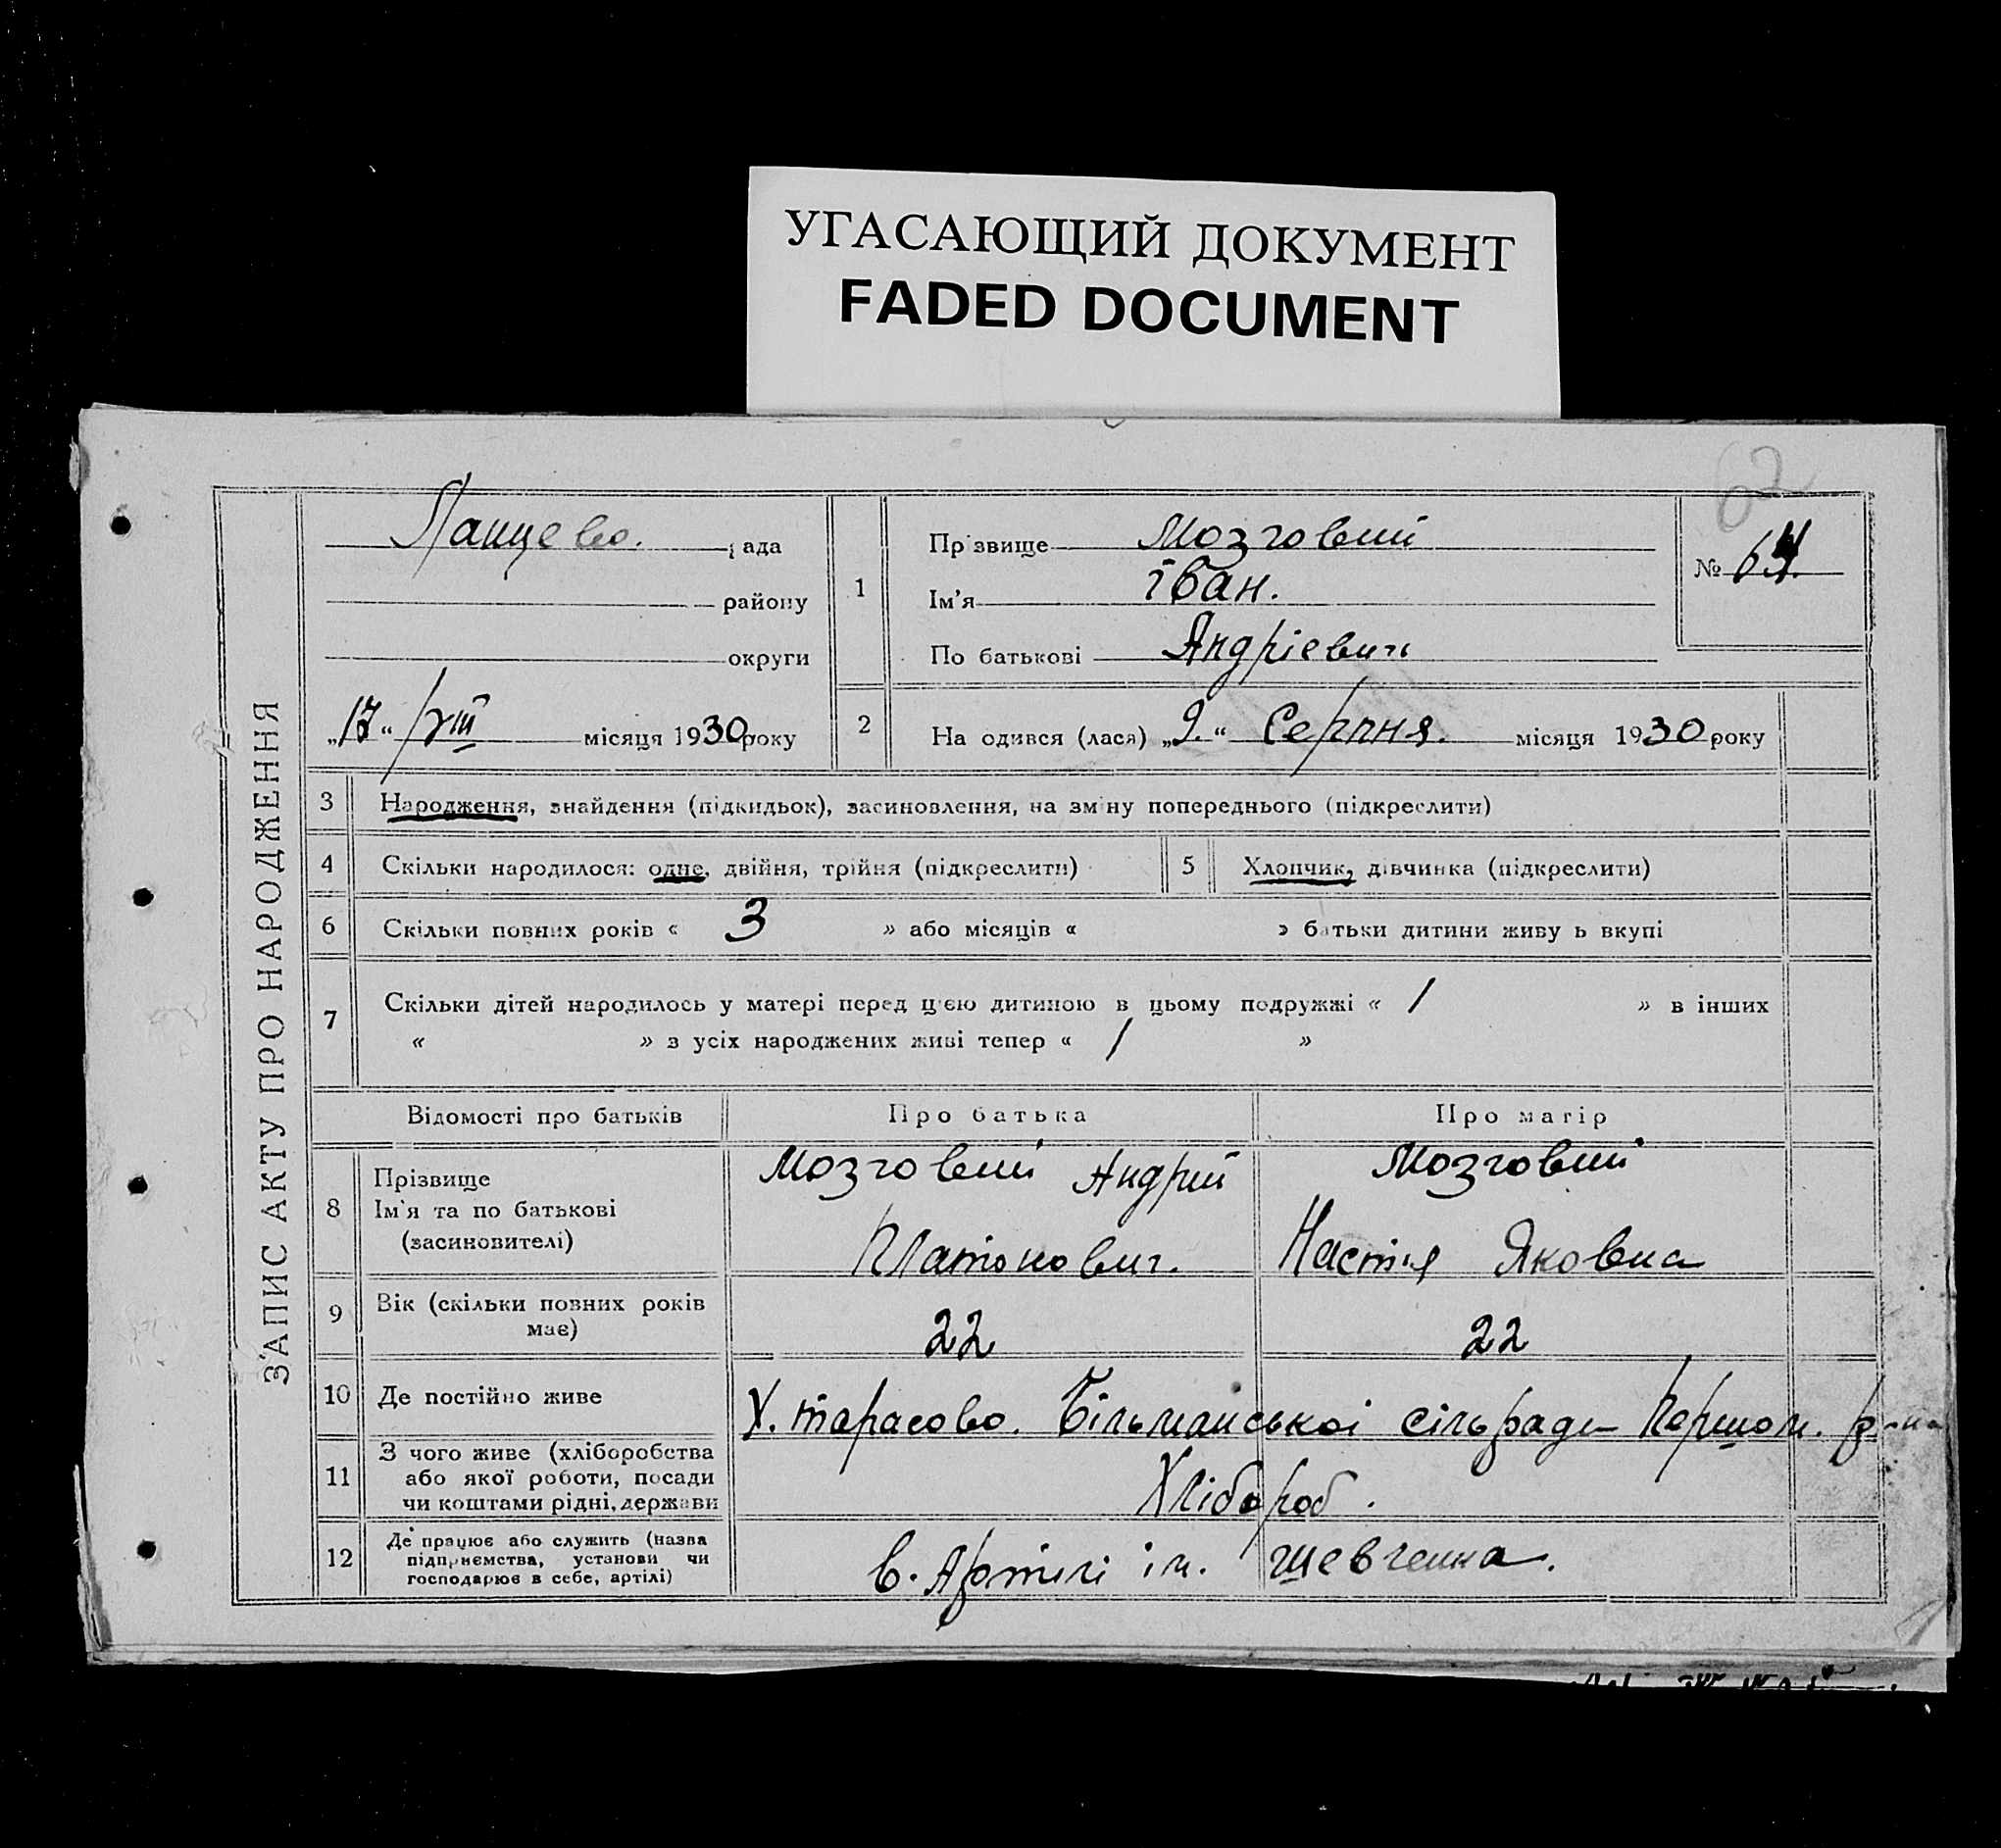 УГАСАЮЩИЙ ДОКУМЕНТ
FADED DOCUMENT
62
ЗАПИС АКТУ ПРО НАРОДЖЕННЯ
Панцево. рада
району
округи
„17“ /VIII місяця 1930 року
1
Прізвище Мозговий
Ім'я Іван.
По батькові Андрієвич
№ 64.
2 На одився (лася) „9.“ Серпня. місяця 1930 року
3 Народження, знайдення (підкидьок), засиновлення, на зміну попереднього (підкреслити)
4 Скільки народилося: одне, двійня, трійня (підкреслити) 5 Хлопчик, дівчинка (підкреслити)
6 Скільки повних років « 3 » або місяців « » батьки дитини живу ь вкупі
7 Скільки дітей народилось у матері перед ц'єю дитиною в цьому подружжі « 1 » в інших
« » з усіх народжених живі тепер « 1 »
Відомості про батьків Про батька Про матір
8 Прізвище
Ім'я та по батькові
(засиновителі)
Мозговий Андрій
Платонович.
Мозговий
Настія Яковна
9 Вік (скільки повних років
має)
22 22
10 Де постійно живе Х. Тарасово. Більманської сільради Першом.
11 З чого живе (хліборобства
або якої роботи, посади
чи коштами рідні, держави
Хлібороб.
12 Де працює або служить (назва
підприємства, установи чи
господарює в себе, артілі)
в. Артілі ім. Шевченка.